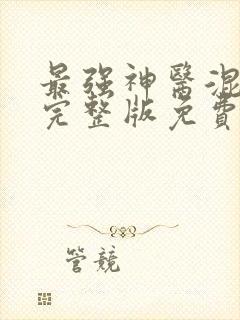 最强神醫混
完整版免費
管競